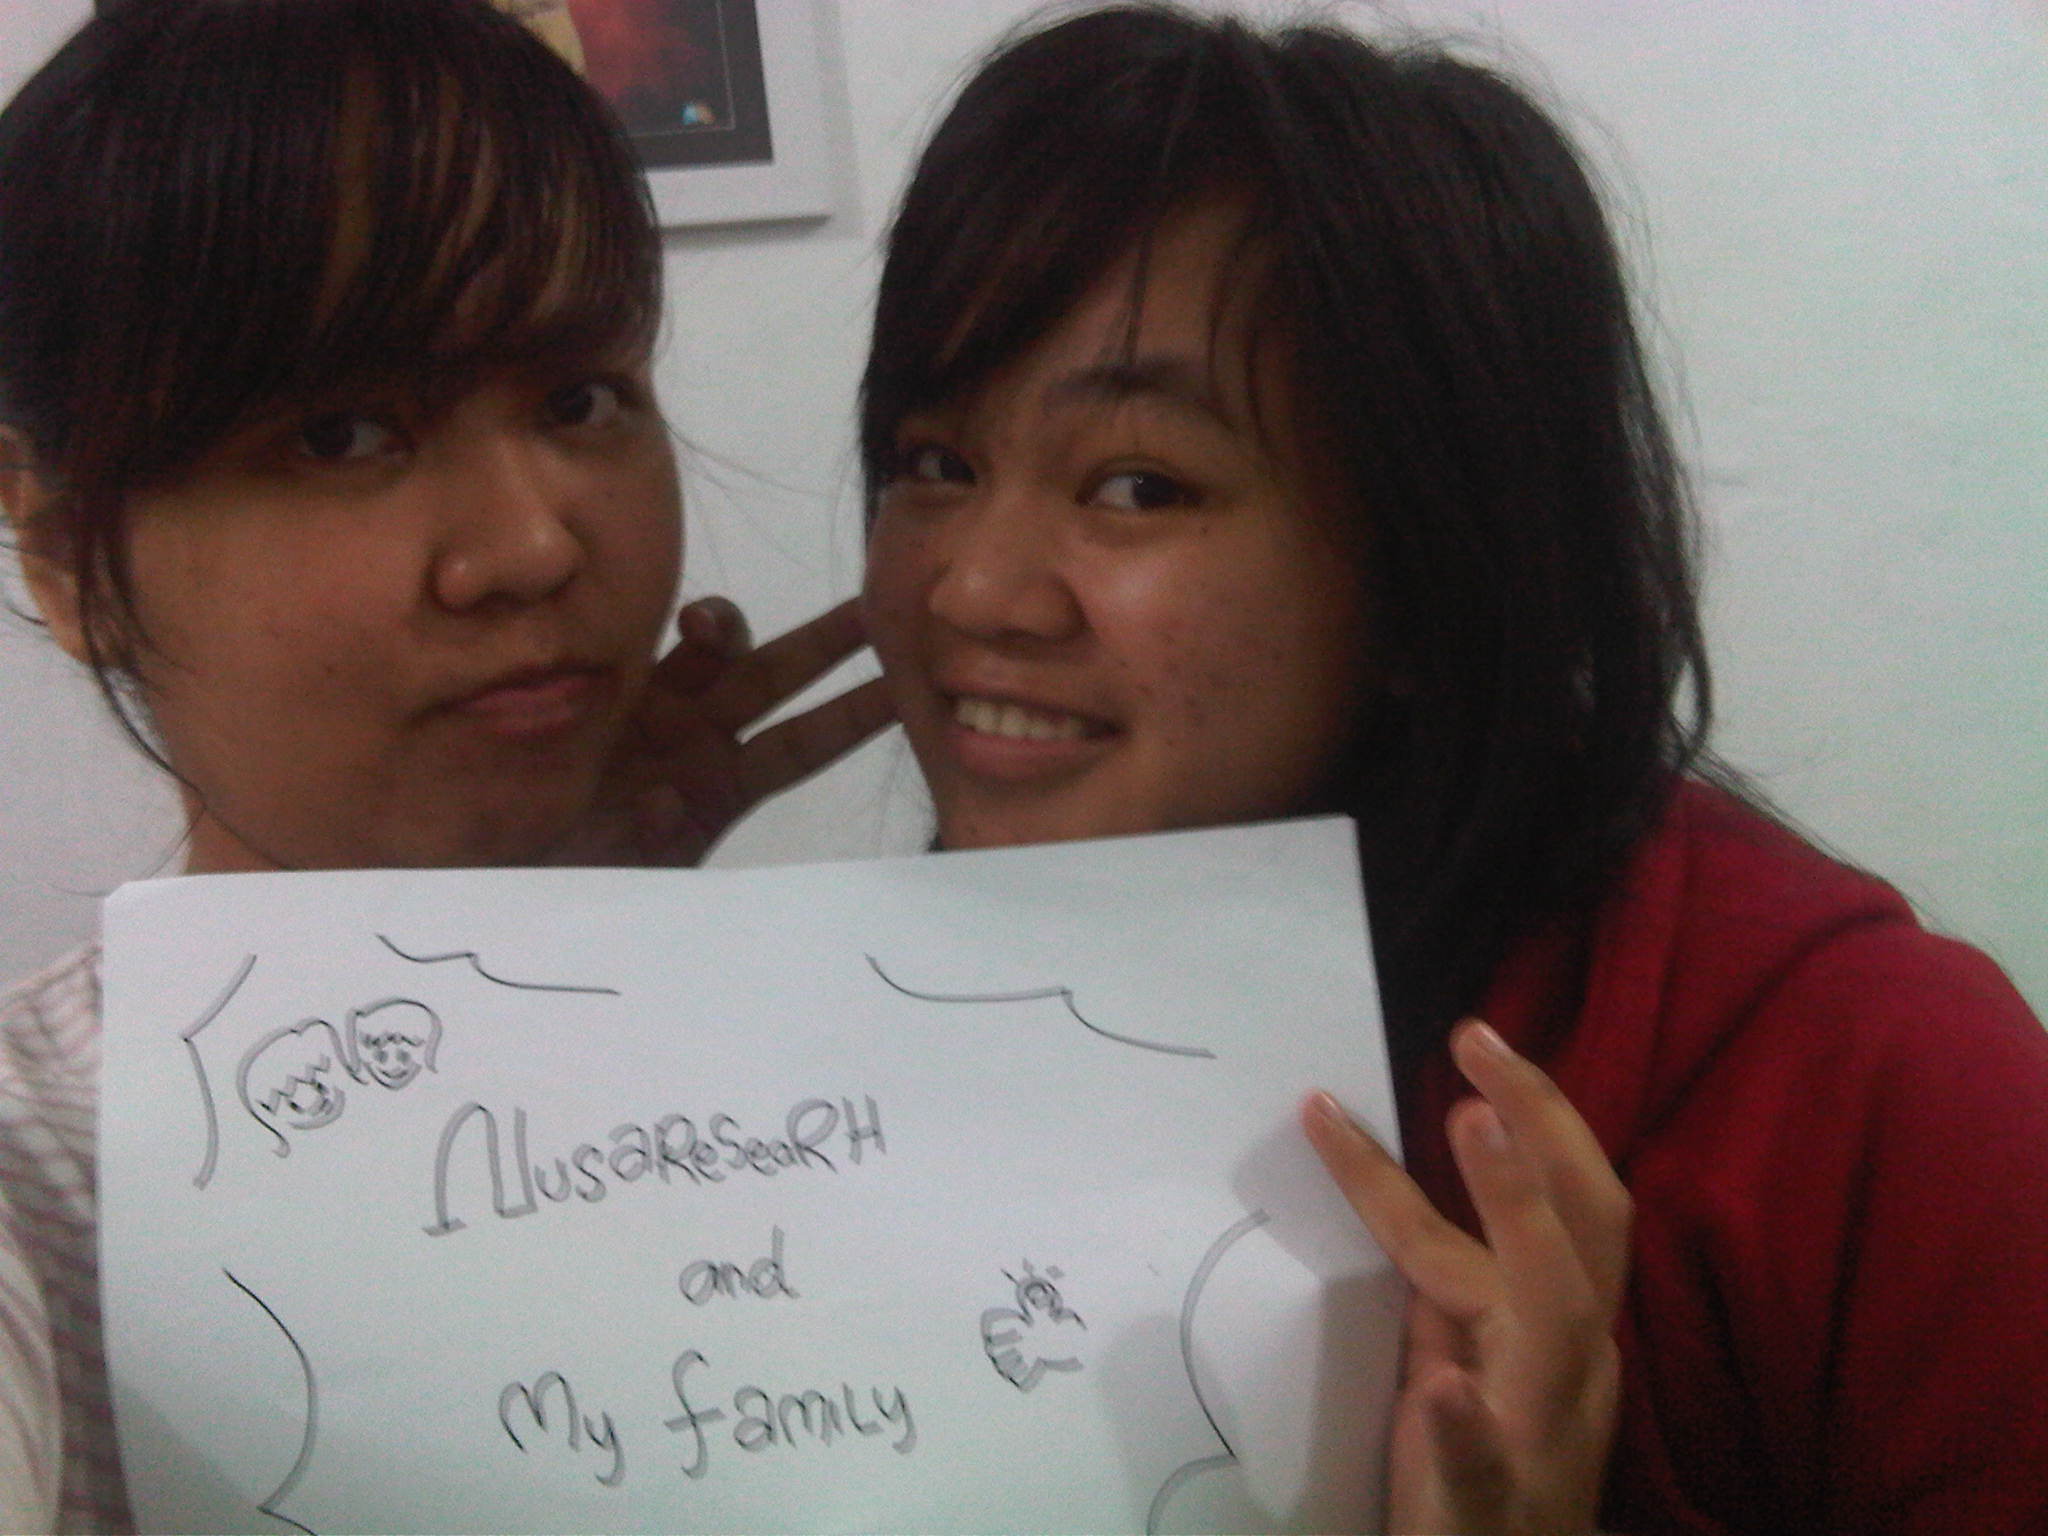 NusaReSeaRH
and
My family